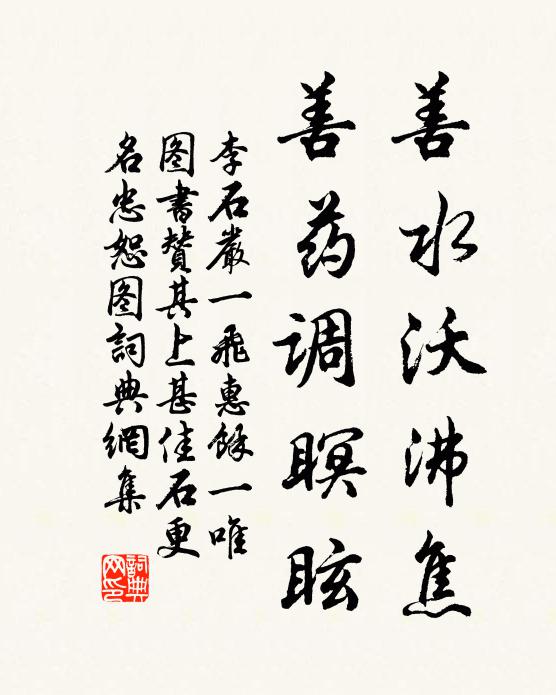 善水沃沸焦
善药调瞑眩
李石嚴一飛惠餘一唯
图書賛其上甚佳石更
名忠恕图詞典網集
詞典网印